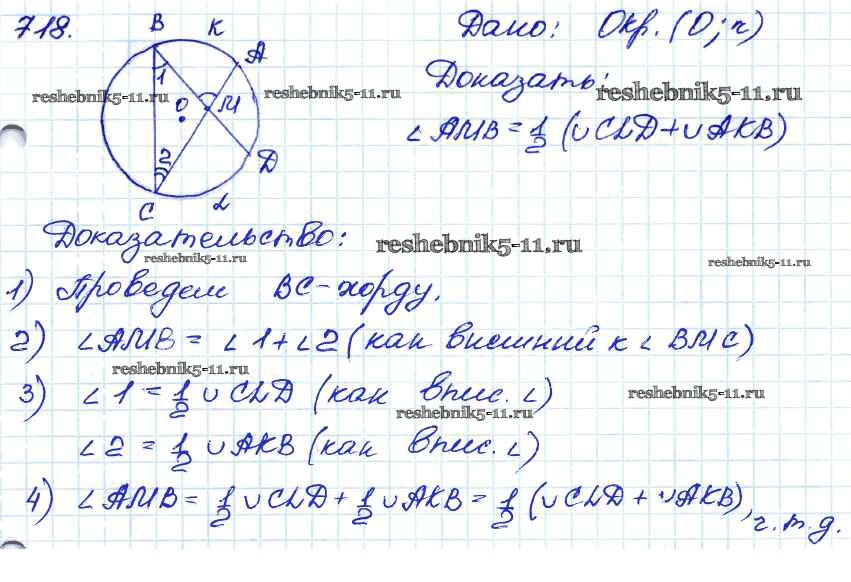 718.
B K A
1 M O
2 D
C L
Дано: Окр. (O; r)
Доказать:
∠ AMB = 1/2 (∪ CLD + ∪ AKB)
reshebnik5-11.ru reshebnik5-11.ru reshebnik5-11.ru
Доказательство:
reshebnik5-11.ru reshebnik5-11.ru reshebnik5-11.ru
1) Проведем BC - хорду.
2) ∠AMB = ∠1 + ∠2 (как внешний к ∠ BMC)
reshebnik5-11.ru
3) ∠1 = 1/2 ∪ CLD (как впис. ∠)
reshebnik5-11.ru reshebnik5-11.ru
∠2 = 1/2 ∪ AKB (как впис. ∠)
4) ∠AMB = 1/2 ∪ CLD + 1/2 ∪ AKB = 1/2 (∪ CLD + ∪ AKB),
ч. т. д.